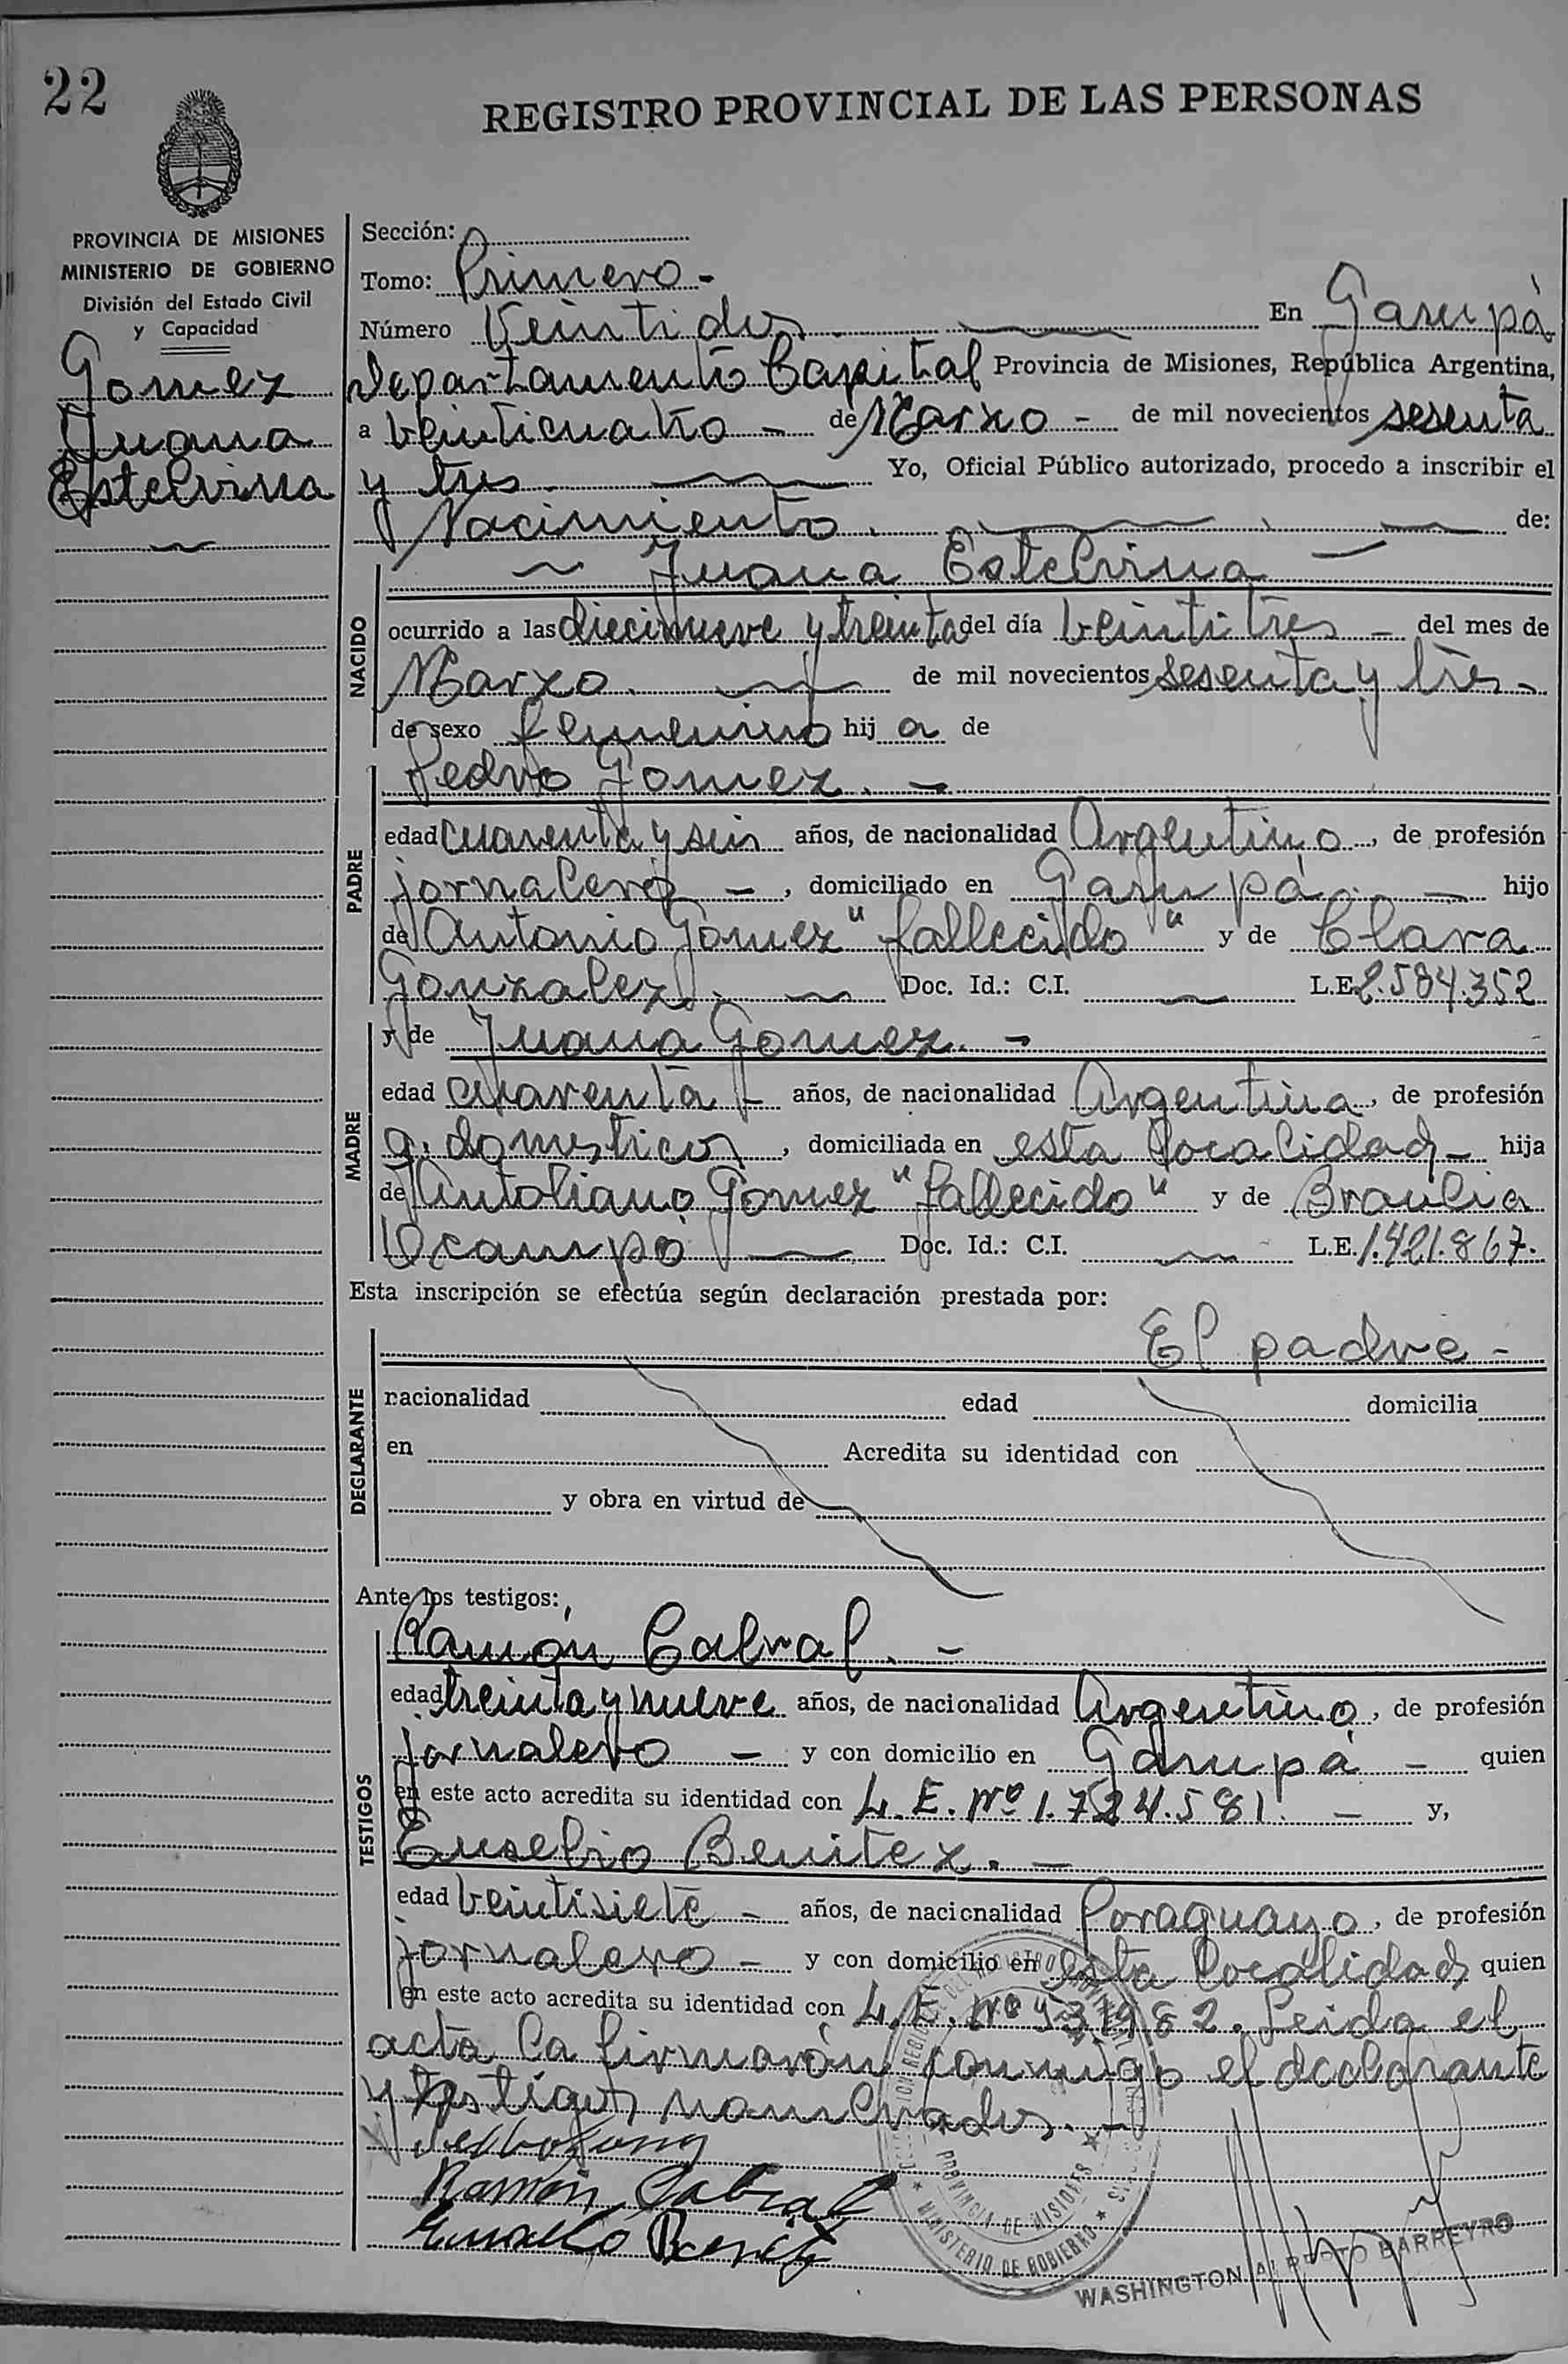 22
REGISTRO PROVINCIAL DE LAS PERSONAS
PROVINCIA DE MISIONES
MINISTERIO DE GOBIERNO
División del Estado Civil
y Capacidad
Gomez
Juana
Estelvina
Sección:
Tomo: Primero -
Número Veintidos En Garupá
departamento Capital Provincia de Misiones, República Argentina,
a veinticuatro - de Marzo - de mil novecientos sesenta
y tres Yo, Oficial Público autorizado, procedo a inscribir el
Nacimiento. de:
NACIDO
Juana Estelvina
ocurrido a las diecinueve y treinta del día veintitres - del mes de
Marzo. de mil novecientos sesenta y tres -
de sexo femenino hij a de
PADRE
Pedro Gomez. -
edad cuarenta y seis años, de nacionalidad Argentino, de profesión
jornalero -, domiciliado en Garupá. - hijo
de Antonio Gomez "fallecido" y de Clara
Gonzalez. Doc. Id.: C.I. L.E. 2.584.352
MADRE
y de Juana Gomez. -
edad cuarenta - años, de nacionalidad Argentina, de profesión
q. domesticos, domiciliada en esta localidad - hija
de Antoliano Gomez "fallecido" y de Braulia
Ocampo Doc. Id.: C.I. L.E. 1.421.867.
Esta inscripción se efectúa según declaración prestada por:
DECLARANTE
El padre -
nacionalidad edad domicilia
en Acredita su identidad con
y obra en virtud de
Ante los testigos:
TESTIGOS
Ramón Cabral. -
edad treinta y nueve años, de nacionalidad Argentino, de profesión
jornalero - y con domicilio en Garupá - quien
en este acto acredita su identidad con L.E. Nº 1.724.581. - y,
Eusebio Benitez. -
edad veintisiete - años, de nacionalidad Paraguayo, de profesión
jornalero - y con domicilio en esta localidad quien
en este acto acredita su identidad con L.E. Nº Leida el
acta la firmarón conmigo el declarante
y testigos nombrados. -
Ramón Cabral
Eusebio Benitez
PROVINCIA DE MISIONES
MINISTERIO DE GOBIERNO
WASHINGTON ALBERTO BARREYRO